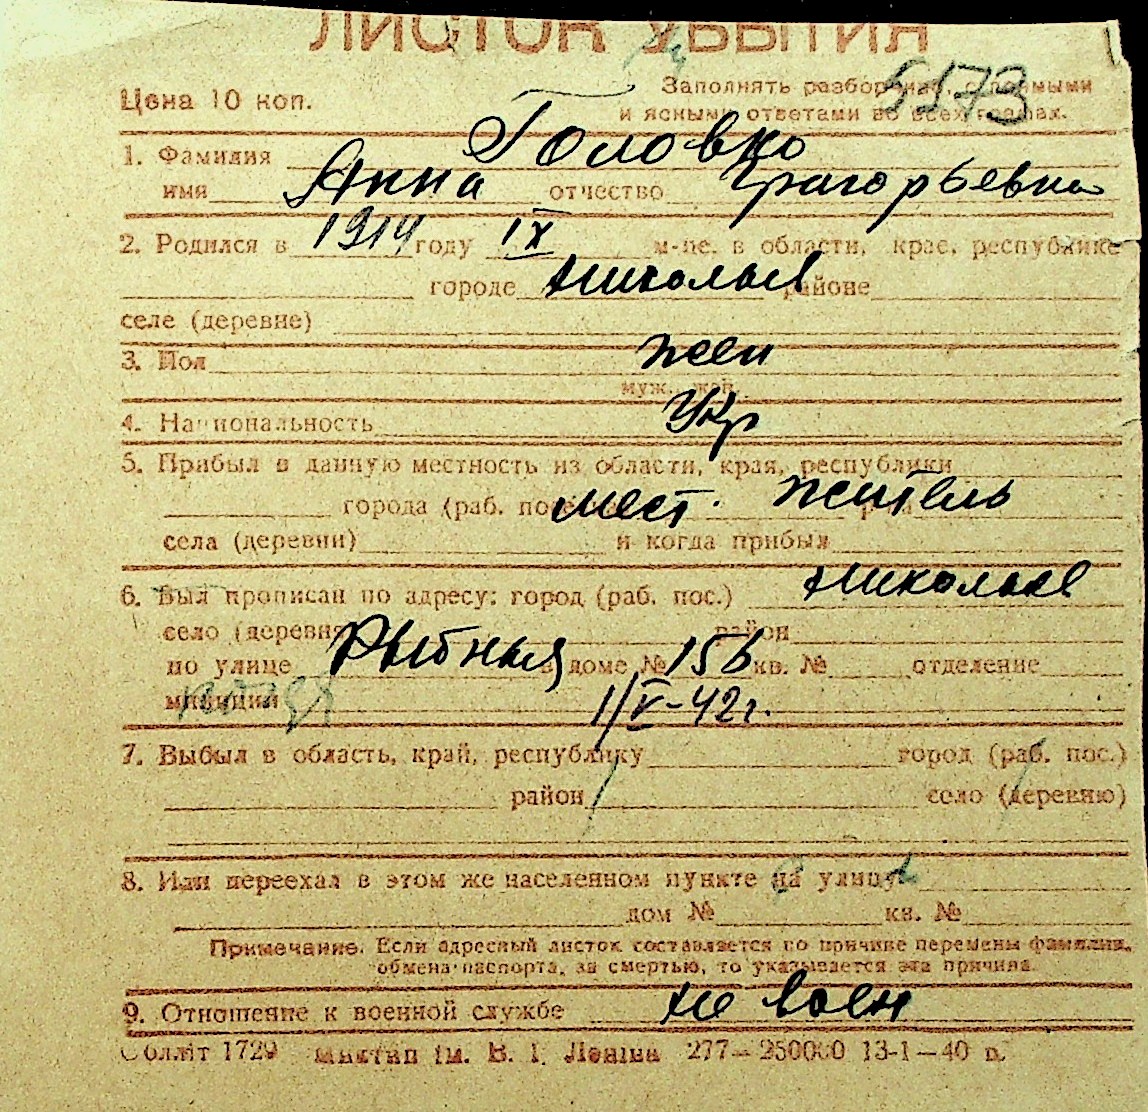 ЛИСТОК УБЫТИЯ
5173
Цена 10 коп.
Заполнять разборчиво, с прямыми
и ясными ответами во всех графах.
1. Фамилия Головко
имя Анна отчество Григорьевна
2. Родился в 1914 году IX м-це. в области, крае, республике
городе Николаев районе
селе (деревне)
3. Пол жен
муж., жен.
4. Национальность Укр
5. Прибыл в данную местность из области, края, республики
города (раб. мест. житель
села (деревни) и когда прибыл
6. Был прописан по адресу: город (раб. пос.) Николаев
село (деревня район
по улице Рыбная в доме № 156 кв. № отделение
милиции 1/V-42г.
7. Выбыл в область, край, республику город (раб. пос.)
район село (деревню)
8. Или переехал в этом же населенном пункте на улицу
дом № кв. №
Примечание. Если адресный листок составляется по причине перемены фамилии,
обмена паспорта, за смертью, то указывается эта причина.
9. Отношение к военной службе не воен
Обллiт 1729 ім. В. І. Леніна 277—250000 13-1—40 р.